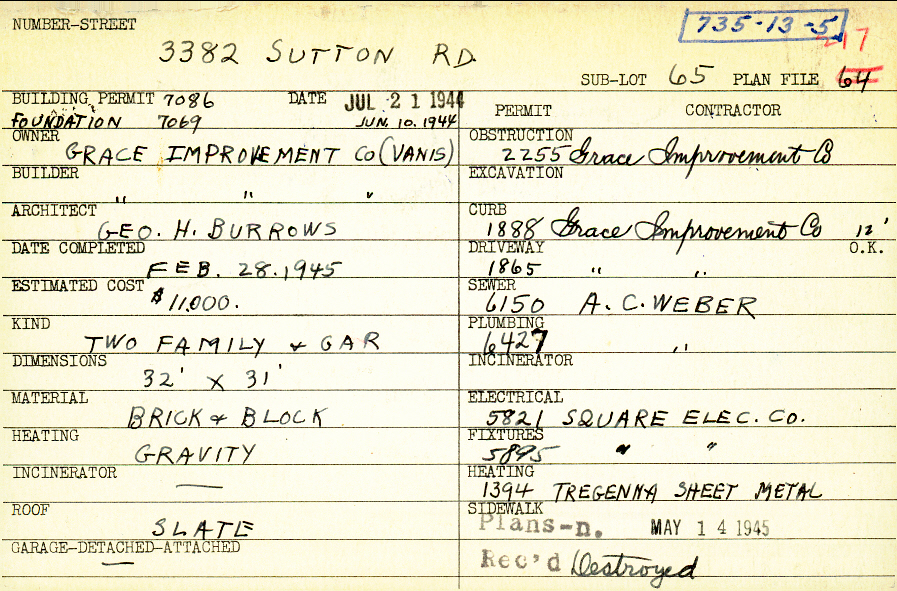 NUMBER-STREET
735-13-5
3382 SUTTON RD.
217
SUB-LOT 65 PLAN FILE 64
BUILDING PERMIT 7086 DATE JUL 21 1944
FOUNDATION 7069 JUN. 10. 1944
OWNER
GRACE IMPROVEMENT CO (VANIS)
BUILDER
" " "
ARCHITECT
GEO. H. BURROWS
DATE COMPLETED
FEB. 28. 1945
ESTIMATED COST
$11,000.
KIND
TWO FAMILY & GAR
DIMENSIONS
32' X 31'
MATERIAL
BRICK & BLOCK
HEATING
GRAVITY
INCINERATOR
—
ROOF
SLATE
GARAGE-DETACHED-ATTACHED
—
PERMIT CONTRACTOR
OBSTRUCTION
2255 Grace Improvement Co
EXCAVATION
CURB
1888 Grace Improvement Co 12'
DRIVEWAY O.K.
1865 " "
SEWER
6150 A. C. WEBER
PLUMBING
6427 "
INCINERATOR
ELECTRICAL
5821 SQUARE ELEC. CO.
FIXTURES
5895 " "
HEATING
1394 TREGENNA SHEET METAL
SIDEWALK
Plans-n. MAY 14 1945
Rec'd Destroyed